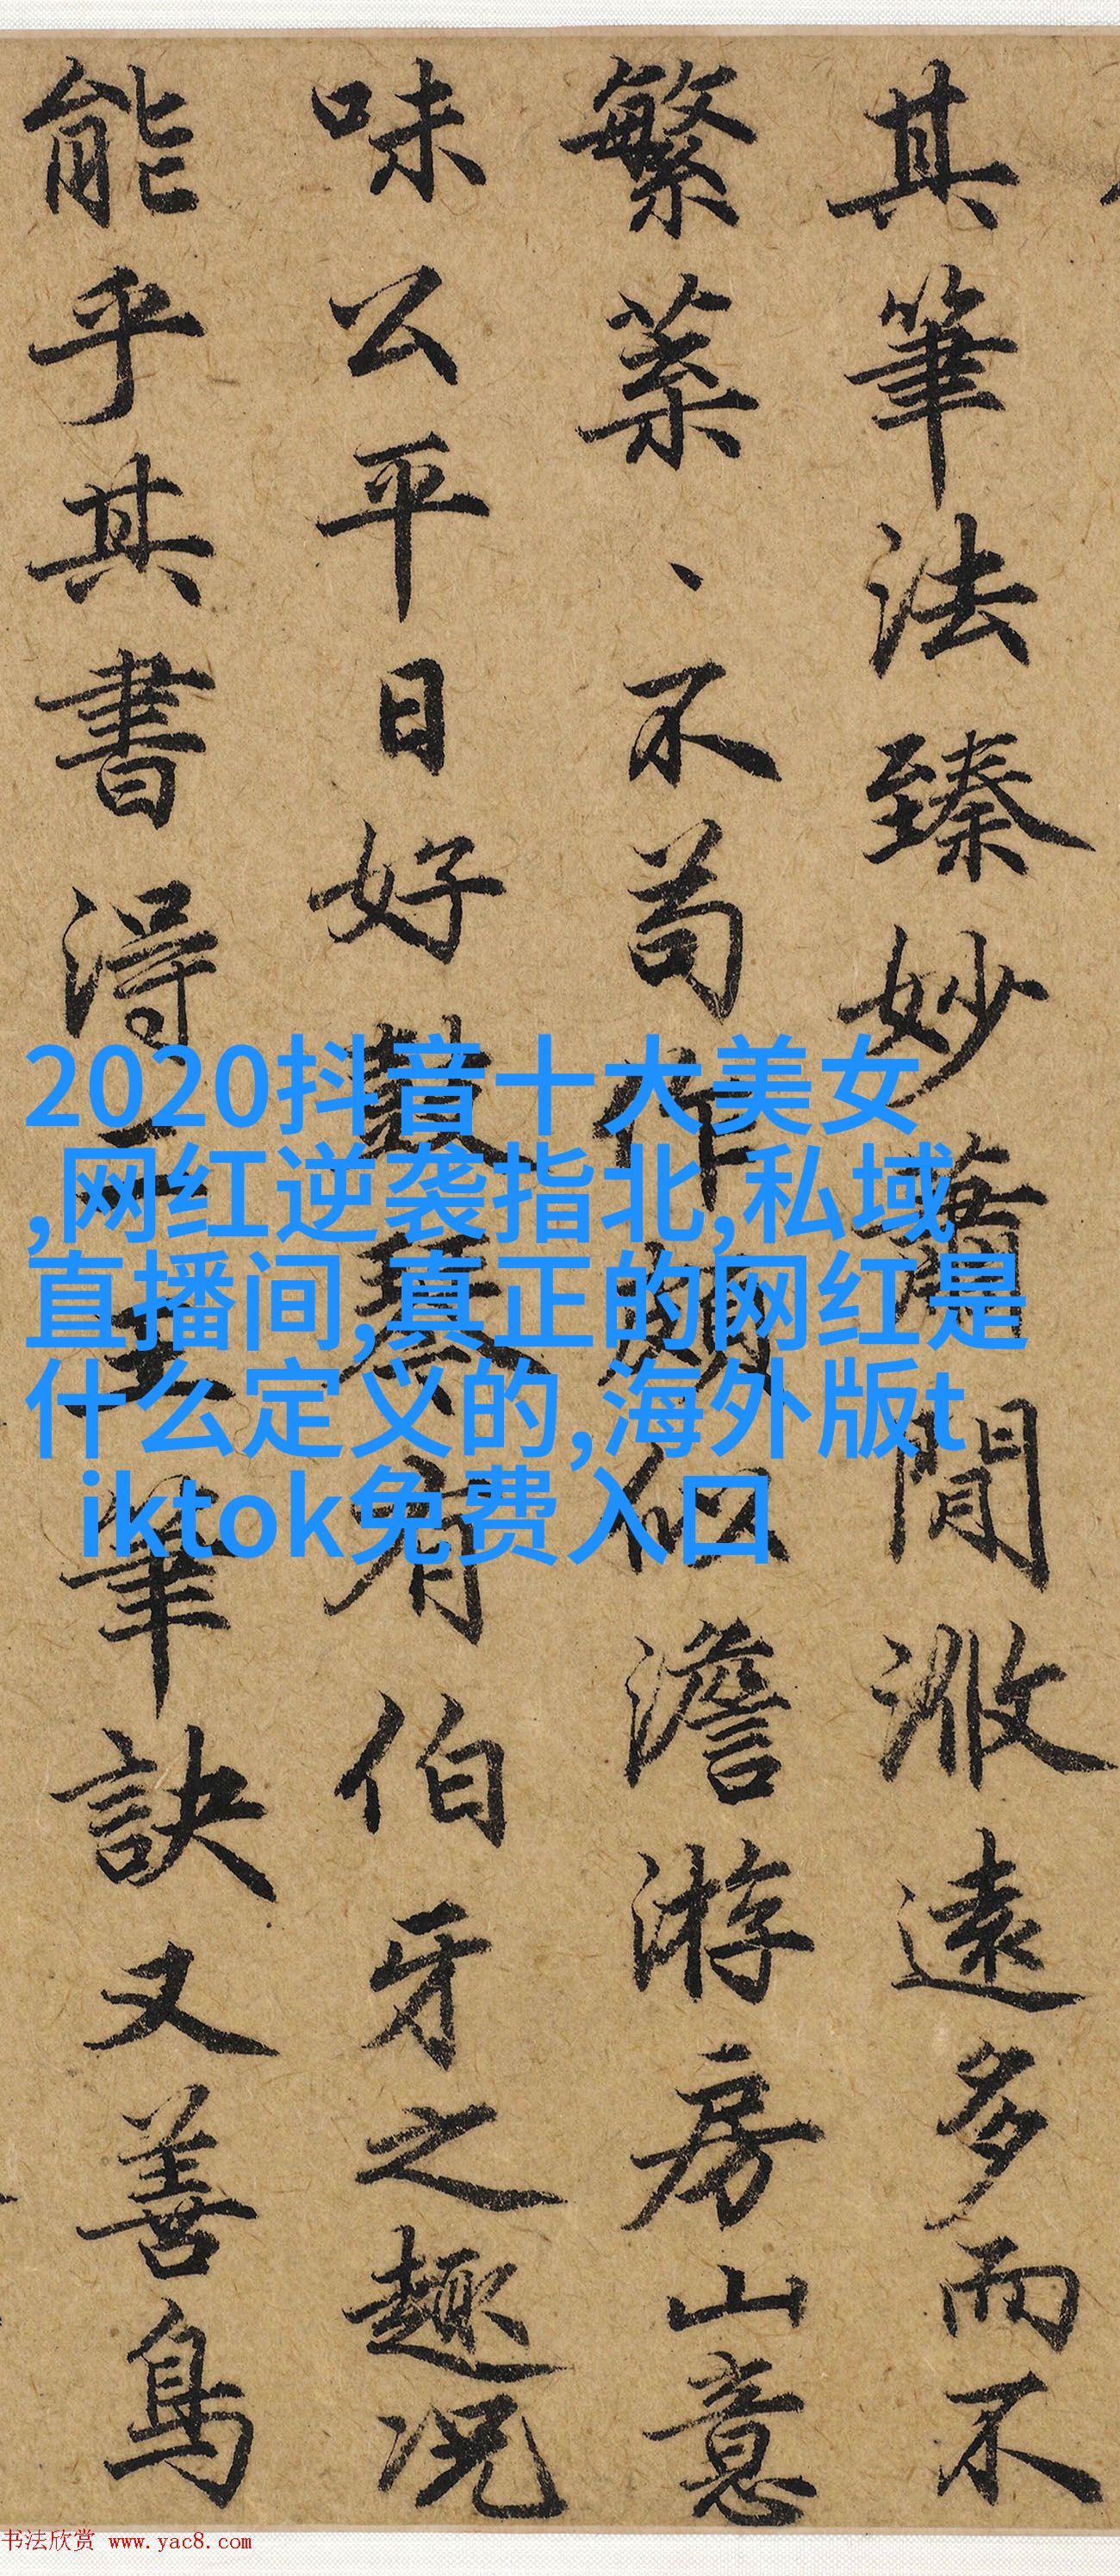 其筆法臻妙蕭閒遠多而不
繁、不苟作頗似澹游房山意
味公平日好鼓琴有伯牙之趣况
能乎其書得二王筆訣又善鳥
2020抖音十大美女
,网红逆袭指北,私域
直播间,真正的网红是
什么定义的,海外版t
iktok免费入口
书法欣赏 www.yac8.com